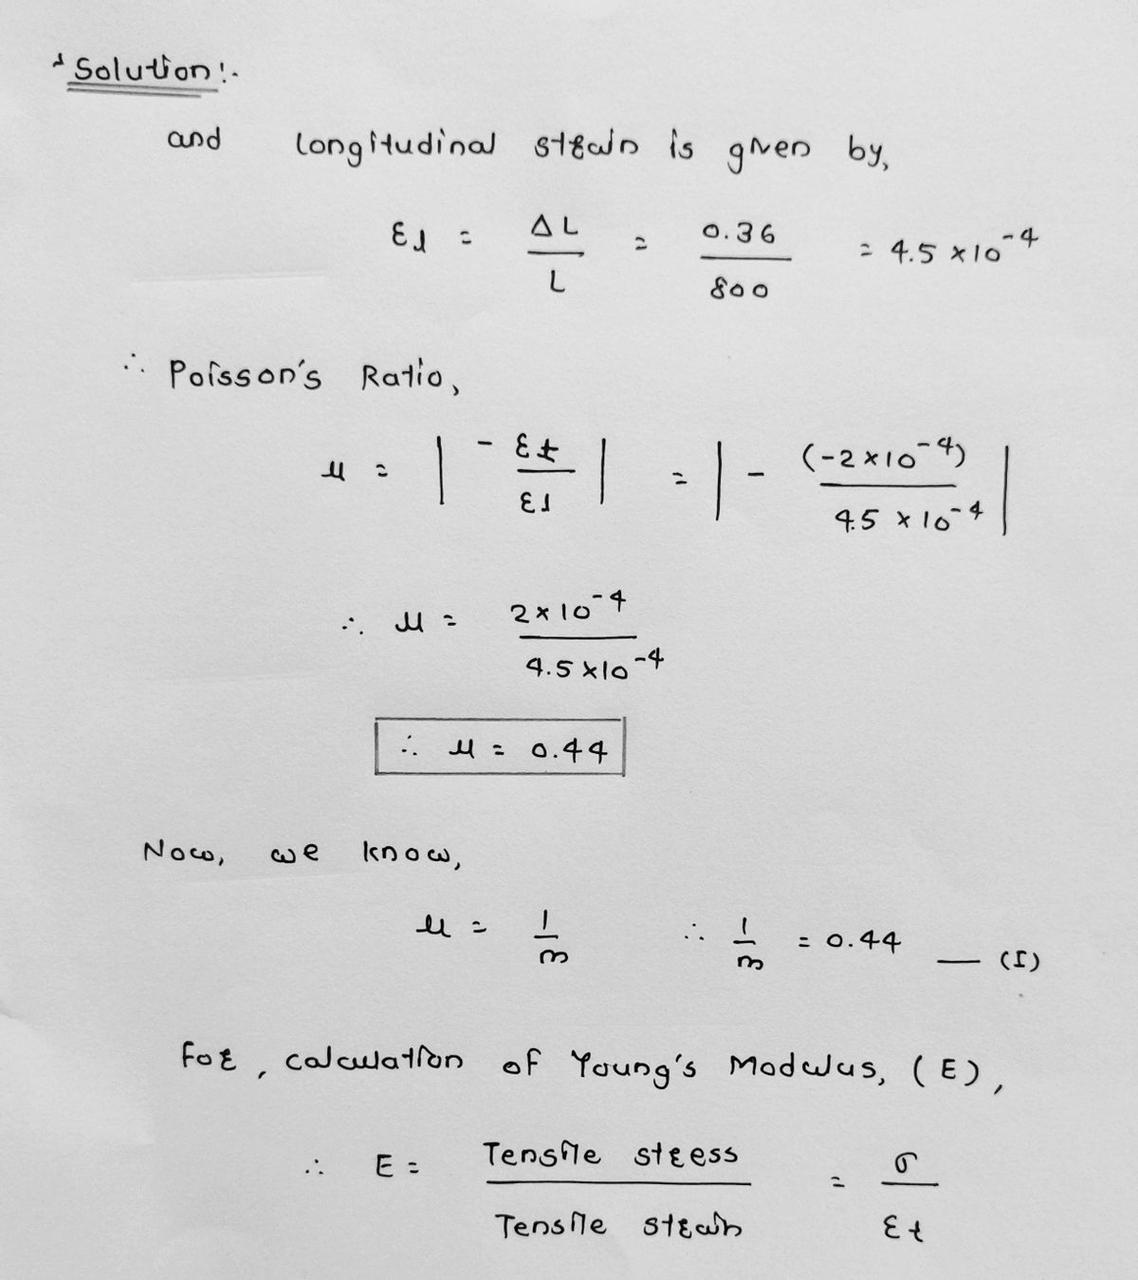 * Solution:-
and longitudinal strain is given by,
εl = ΔL / L = 0.36 / 800 = 4.5 × 10⁻⁴
∴ Poisson's Ratio,
μ = | - εt / εl | = | - (-2×10⁻⁴) / 4.5 × 10⁻⁴ |
∴ μ = 2×10⁻⁴ / 4.5×10⁻⁴
∴ μ = 0.44
Now, we know,
μ = 1/m ∴ 1/m = 0.44 — (I)
For, calculation of Young's Modulus, (E),
∴ E = Tensile stress / Tensile strain = σ / εt